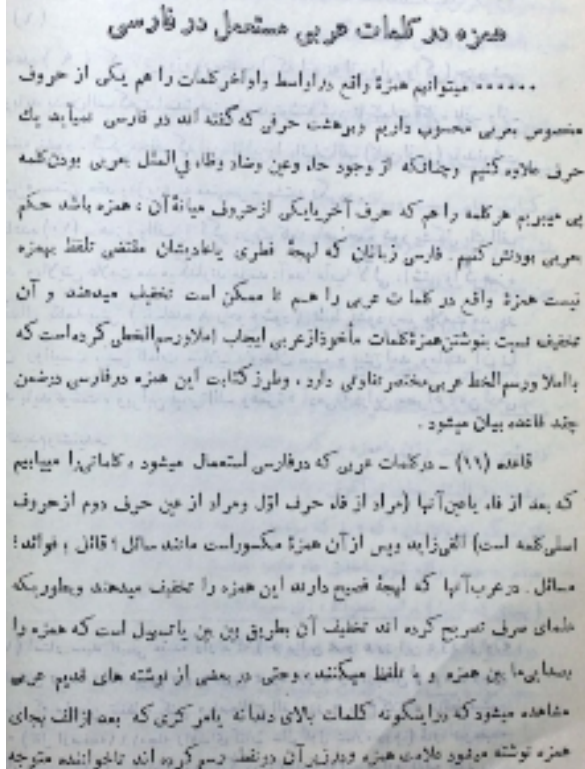 همزه در کلمات عربی مستعمل در فارسی
...... میتوانیم همزهٔ واقع در اواسط و اواخر کلمات را هم یکی از حروف
مخصوص بعربی محسوب داریم و بر هشت حرفی که گفته اند در فارسی نمیآید یك
حرف علاوه کنیم و چنانکه از وجود حاء و عین و ضاد و ظاء فی‌المثل بعربی بودن کلمه
پی میبریم هر کلمه را هم که حرف آخر یا یکی از حروف میانهٔ آن ، همزه باشد حکم
بعربی بودنش کنیم . فارسی زبانان که لهجهٔ فطری یا عادیشان مقتضی تلفظ بهمزه
نیست همزهٔ واقع در کلمات عربی را هم تا ممکن است تخفیف میدهند و آن
تخفیف نسبت بنوشتن همزهٔ کلمات مأخوذ از عربی ایجاب املا و رسم‌الخطی کرده‌است که
با املا و رسم الخط عربی مختصر تفاوتی دارد ، و طرز کتابت این همزه در فارسی در ضمن
چند قاعده بیان میشود .
قاعده (۱۱) ـ در کلمات عربی که در فارسی استعمال میشود ، کلماتی را مییابیم
که بعد از فاء یا عین آنها (مراد از فاء حرف اوّل و مراد از عین حرف دوم از حروف
اصلی کلمه است) الفی زاید و پس از آن همزهٔ مکسور است مانند سائل ؛ قائل ؛ فوائد ؛
مسائل . در عرب آنها که لهجهٔ فصیح دارند این همزه را تخفیف میدهند و بطوریکه
علمای صرف تصریح کرده اند تخفیف آن بطریق بین بین یا تبدیل است که همزه را
بصدایی ما بین همزه و یا تلفظ میکنند ، و حتی در بعضی از نوشته های قدیم عربی
مشاهده میشود که در اینگونه کلمات بالای دندانه یا مرکزی که بعد از الف بجای
همزه نوشته میشود علامت همزه و در زیر آن دو نقطه رسم کرده اند تا خواننده متوجه